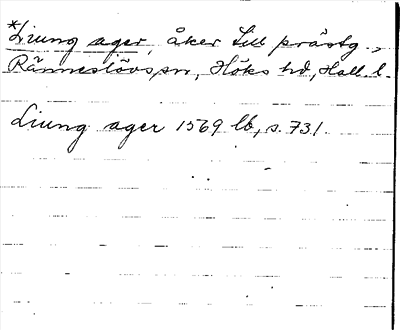 *Liung ager, åker till prästg.,
Ränneslövs sn, Höks hd, Hall. l.
Liung ager 1569 lb, s. 731.